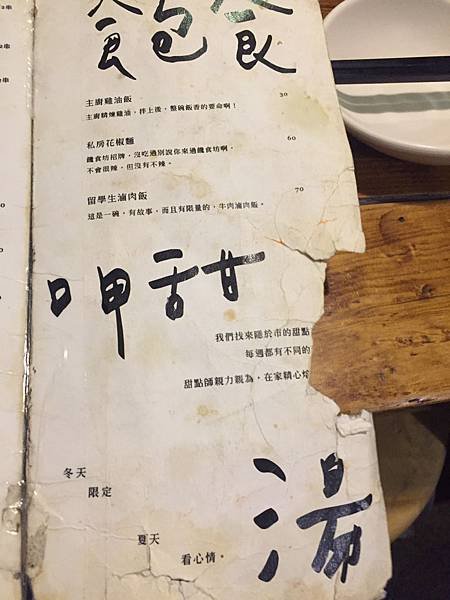 食包飯
主廚雞油飯 30
主廚精煉雞油，拌上後，整碗飯香的要命啊！
私房花椒麵 60
饑食坊招牌，沒吃過別說你來過饑食坊啊。
不會很辣，但沒有不辣。
留學生滷肉飯 70
這是一碗，有故事，而且有限量的，牛肉滷肉飯。
呷甜
我們找來隱於市的甜點
每週都有不同的
甜點師親力親為，在家精心烤
湯
冬天
限定
夏天
看心情。